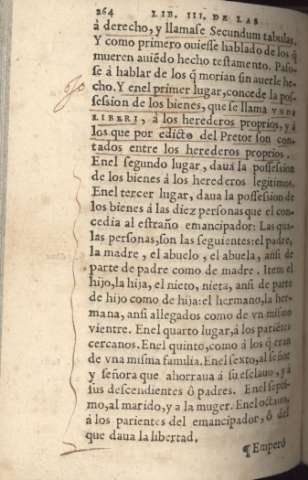 264 LIB. III. DE LAS
à derecho, y llamase Secundum tabulas.
Y como primero ouiesse hablado de los q̃
mueren auiẽdo hecho testamento. Passo-
se à hablar de los q̃ morian sin auerle he-
cho. Y en el primer lugar, concede la pos-
session de los bienes, que se llama VNDE
LIBERI, à los herederos proprios, y à
los que por edicto del Pretor son con-
tados entre los herederos proprios.
En el segundo lugar, daua la possession
de los bienes à los herederos legitimos.
En el tercer lugar, daua la possession de
los bienes à las diez personas que el con-
cedia al estraño emancipador: Las qua-
les personas, son las siguientes: el padre,
la madre, el abuelo, el abuela, ansi de
parte de padre como de madre. Item el
hijo, la hija, el nieto, nieta, ansi de parte
de hijo como de hija: el hermano, la her-
mana, ansi allegados como de vn mismo
vientre. En el quarto lugar, à los pariẽtes
cercanos. En el quinto, como à los q̃ eran
de vna misma familia. En el sexto, al señor
y señora que ahorraua à su esclauo, y à
sus descendientes ò padres. En el septi-
mo, al marido, y a la muger. En el octauo,
à los parientes del emancipador, ò del
que daua la libertad.
¶ Emperò